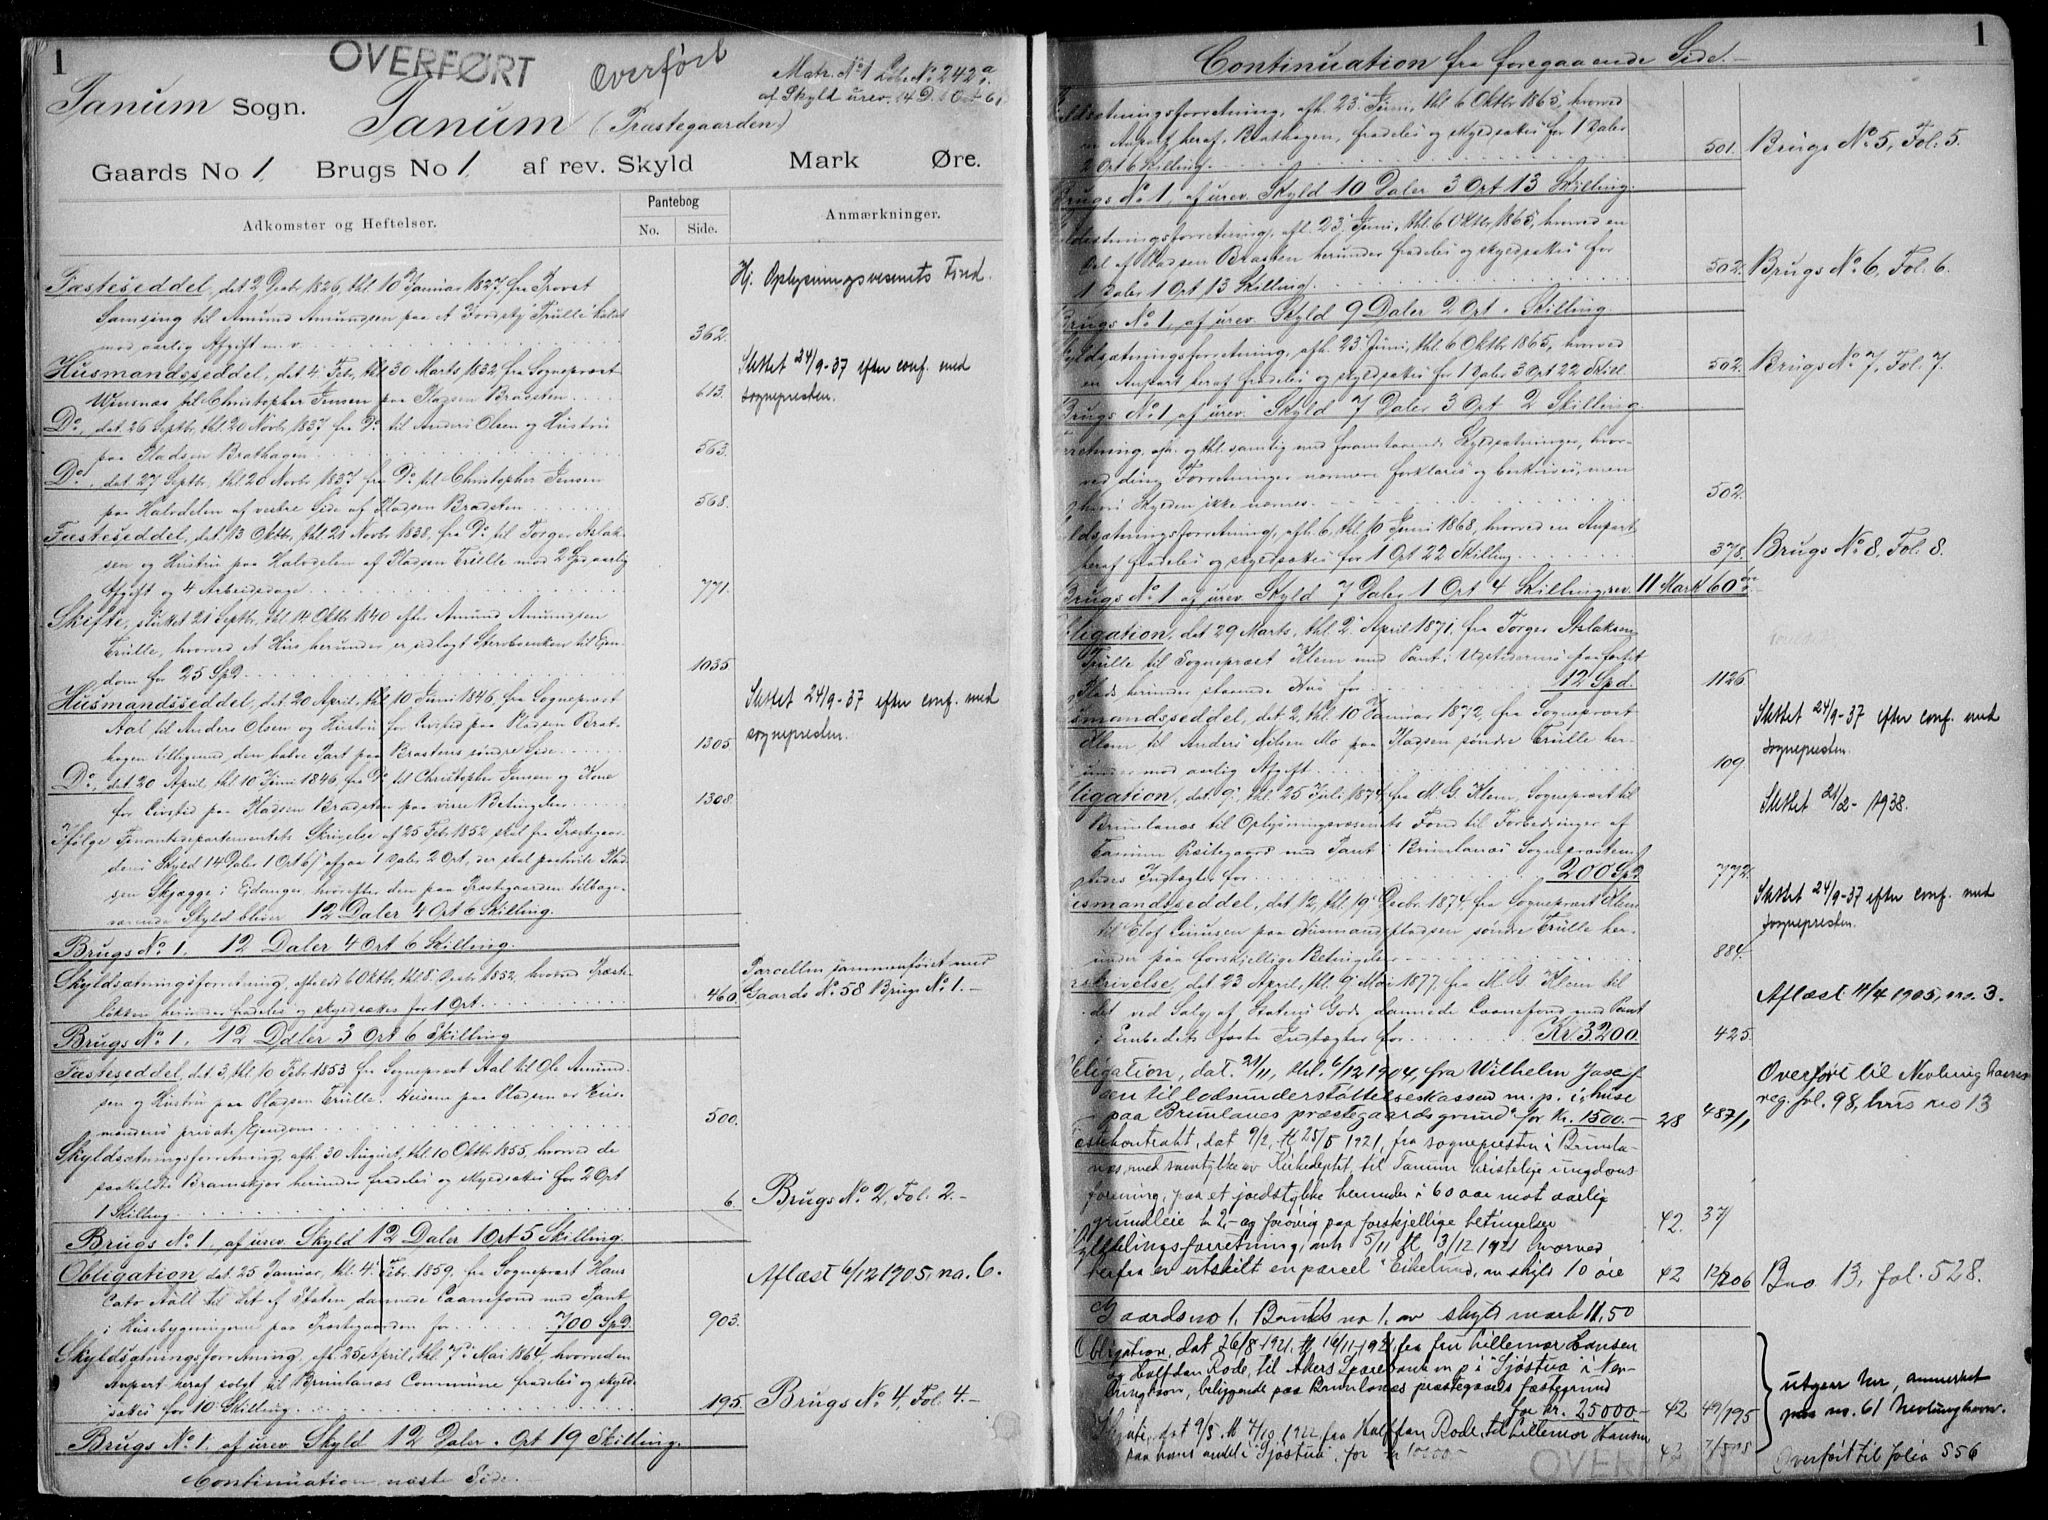 1
OVERFØRT
Overført
Matr. No 1 Løbe No 242a
af Skyld urev. 14 D. 1 Ort 6 ß
Tanum Sogn.
Tanum (Præstegaarden)
Gaards No 1. Brugs No 1. af rev. Skyld Mark Øre.
Adkomster og Heftelser.
Pantebog
No. Side.
Anmærkninger.
Fæsteseddel, dat. 2 Decbr. 1826, thl. 10 Januar 1827, fra Provst
Samsing til Amund Amundsen paa et Jordsty Trülle kaldt
mod aarlig Afgift m. v. 362.
Hj. Oplysningsvesenets Fond.
Husmandsseddel, dat. 4 Febr., thl. 30 Marts 1832 fra Sognepræst
Winsnæs til Christopher Jensen paa Pladsen Bradsten 613.
Slettet 24/9-37 efter conf. med
sognepresten.
Do, dat. 26 Septbr, thl. 20 Novbr. 1837 fra Do til Anders Olsen og Hustru
paa Pladsen Brathagen 563.
Do, dat. 27 Septbr, thl. 20 Novbr. 1837 fra Do til Christopher Jensen
paa Halvdelen af vestre Side af Pladsen Bradsten 568.
Fæsteseddel, dat. 13 Oktbr, thl. 21 Novbr. 1838, fra Do til Torger Aslak-
sen og Hustru paa Halvdelen af Pladsen Trülle mod 2 Spd aarlig
Afgift og 4 Arbeidsdage 771.
Skifte, sluttet 21 Septbr, thl. 14 Oktbr. 1840 efter Amund Amundsen
Trülle, hvorved et Hus herunder er udlagt Sterboenken til Eien-
dom for 25 SpD 1035
Husmandsseddel, dat. 20 April, thl. 10 Juni 1846, fra Sognepræst
Aal til Anders Olsen og Hustru for Livstid paa Pladsen Brat-
hagen tilligemed den halve Part paa Brastens søndre Side 1305
Slettet 24/9-37 efter conf. med
sognepresten.
Do, dat. 20 April, thl. 10 Juni 1846, fra Do til Christopher Jensen og Kone
for Livstid paa Pladsen Bradsten paa visse Betingelser 1308.
Ifølge Finantsdepartementets Skrivelse af 25 Febr. 1852 skal fra Præstegaar-
dens Skyld 14 Daler 1 Ort 6 ß afgaa 1 Daler 2 Ort, der skal paahvile Plad-
sen Skjægge i Eidanger, hvorefter den paa Præstegaarden tilbage-
værende Skyld bliver 12 Daler 4 Ort 6 Skilling.
Brugs No 1. 12 Daler 4 Ort 6 Skilling.
Skyldsætningsforretning, afholdt 6 Oktbr, thl. 8 Decbr. 1852, hvorved Præste-
løkken herunder fradeles og skyldsættes for 1 Ort 460.
Parcellen sammenføiet med
Gaards No 58 Brugs No 1.
Brugs No 1. 12 Daler 3 Ort 6 Skilling
Fæsteseddel, dat. 3, thl. 10 Febr. 1853 fra Sognepræst Aal til Ole Amund-
sen og Hustru paa Pladsen Trülle. Husene paa Pladsen er Hus-
mandens private Eiendom 500.
Skyldsætningsforretning, afh. 30 August, thl. 10 Oktbr. 1855, hvorved de
saakaldte Bramskjær herunder fradeles og skyldsættes for 2 Ort
1 Skilling 6.
Brugs No 2, Fol. 2.
Brugs No 1, af urev. Skyld 12 Daler 1 Ort 5 Skilling.
Obligation, dat. 25 Januar, thl. 4 Febr. 1859, fra Sognepræst Hans
Cato Aall til det af Staten dannede Laanefond med Pant
i Husebygningerne paa Præstegaarden for 700 SpD. 903.
Aflæst 6/12 1905, no. 6.
Skyldsætningsforretning, afh. 25 April, thl. 7 Mai 1864, hvorved en
Anpart heraf solgt til Brunlanæs Commune fradeles og skyld-
sættes for 10 Skilling 195.
Brugs No 4, Fol. 4.
Brugs No 1, af urev. Skyld 12 Daler " Ort 19 Skilling.
Continuation næste Side.
1
Continuation fra foregaaende Side.
ldsætningsforretning, afh. 23 Juni, thl. 6 Oktbr 1865, hvorved
en Anpart heraf, Brathagen, fradeles og skyldsættes for 1 Daler
2 Ort 6 Skilling 501.
Brugs No 5, Fol. 5.
Brugs No 1, af urev. Skyld 10 Daler 3 Ort 13 Skilling.
ldsætningsforretning, afh. 23 Juni, thl. 6 Oktbr 1865, hvorved en
Del af Pladsen Brasten herunder fradeles og skyldsættes for
1 Daler 1 Ort 13 Skilling 502.
Brugs No 6, Fol. 6.
Brugs No 1, af urev. Skyld 9 Daler 2 Ort " Skilling.
ldsætningsforretning, afh. 23 Juni, thl. 6 Oktbr 1865, hvorved
en Anpart heraf fradeles og skyldsættes for 1 Daler 3 Ort 22 Skill. 502.
Brugs No 7, Fol. 7.
Brugs No 1, af urev. Skyld 7 Daler 3 Ort 2 Skilling.
rretning, afh. og thl. samtlig med foranstaaende Skyldsætninger, hvor-
ved disse Forretninger nærmere forklares og beskrives, men
hvori Skylden ikke nævnes 502.
ldsætningsforretning, afh. 6, thl. 10 Juni 1868, hvorved en Anpart
heraf fradeles og skyldsættes for 1 Ort 22 Skilling 378.
Brugs No 8, Fol. 8.
Brugs No 1 af urev. Skyld 7 Daler 1 Ort 4 Skilling, rev. 11 Mark 60 Øre
bligation, dat. 29 Marts, thl. 2 April 1871, fra Torger Aslaksen
Trülle til Sognepræst Klem med Pant i Udstederens paa fæstet
Plads herunder staaende Hus for 12 Spd. 1126
smandsseddel, dat. 2, thl. 10 Januar 1872, fra Sognepræst
Klem til Anders Nilsen Mo paa Pladsen søndre Trülle her-
under mod aarlig Afgift 109.
Slettet 24/9-37 efter conf. med
sognepresten.
bligation, dat. 9, thl. 25 Juli 1874, fra M. G. Klem, Sognepræst til
Brunlanæs til Oplysningsvæsenets Fond til Forbedringer af
Tanum Præstegaard med Pant i Brunlanæs Sognepræstem-
bedes Indtægter for 200 SpD 772.
Slettet 21/2- 1938.
smandsseddel, dat. 12, thl. 19 Decbr. 1874 fra Sognepræst Klem
til Elof Linusen paa Husmandspladsen søndre Trülle her-
under paa forskjellige Betingelser 884.
Slettet 24/9-37 efter conf. med
sognepresten.
skrivelse, dat. 23 April, thl. 9 Mai 1877, fra M. G. Klem til
det ved Salg af Statens Gods dannede Laanefond med Pant
i Embedets faste Indtægter for Kr. 3200. 425.
Aflæst 11/4 1905, no. 3.
Obligation, dat. 21/11, thl. 6/12 1904, fra Wilhelm Josef-
sen til lodsunderstøttelseskassen m. p. i "huse
paa Brunlanes præstegaards grund" for kr. 1500.— 28 487/1
Overført til Nevlunghavns
reg. fol. 98, hus no 13
Festekontrakt, dat 9/2, tl 25/5 1921, fra sognepresten i Brunla-
næs, med samtykke av Kirkedeptet, til Tanum kristelig ungdoms-
forening, paa et jordstykke herunder i 60 aar mot aarlig
grundleie kr 2,- og forøvrig paa forskjellige betingelser 42. 37/
Skylddelingsforretning, avh 5/11 tl 3/12 1921 hvorved
herfra er utskilt en parcel "Eikelund", av skyld 10 øre 42 12/206
Bno. 13, fol. 528.
Gaardsno 1. Bruks no 1. av skyld mark 11,50
Obligation, dat 26/8-1921. tl 16/11-1921, fra fru Lillemor Hansen
og Halfdan Rode, til Akers Sparebank m p i "Sjøstua" i Nev-
lunghavn, beliggende paa Brunlanæs præstegaards fæstegrund
for kr. 25000.— 42 49/195
Skjøte, dat 9/8 tl 7/10 1922 fra Halfdan Rode, til Lillemor Hansen
paa hans andel i "Sjøstua", for kr 10000.- 43 7/508
utgaar her, anmerket
paa no. 61 Nevlunghavn.
Overført til folio 556
OVERFØRT